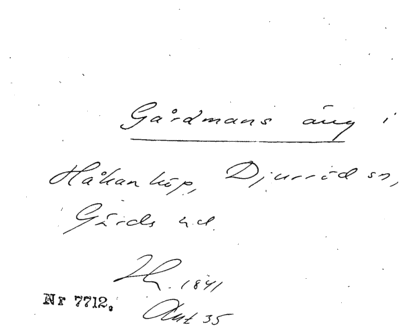 Gårdmans äng i
Håkanköp, Djurröd sn,
Gärds hd.
1841
Nr 7712. Akt 35